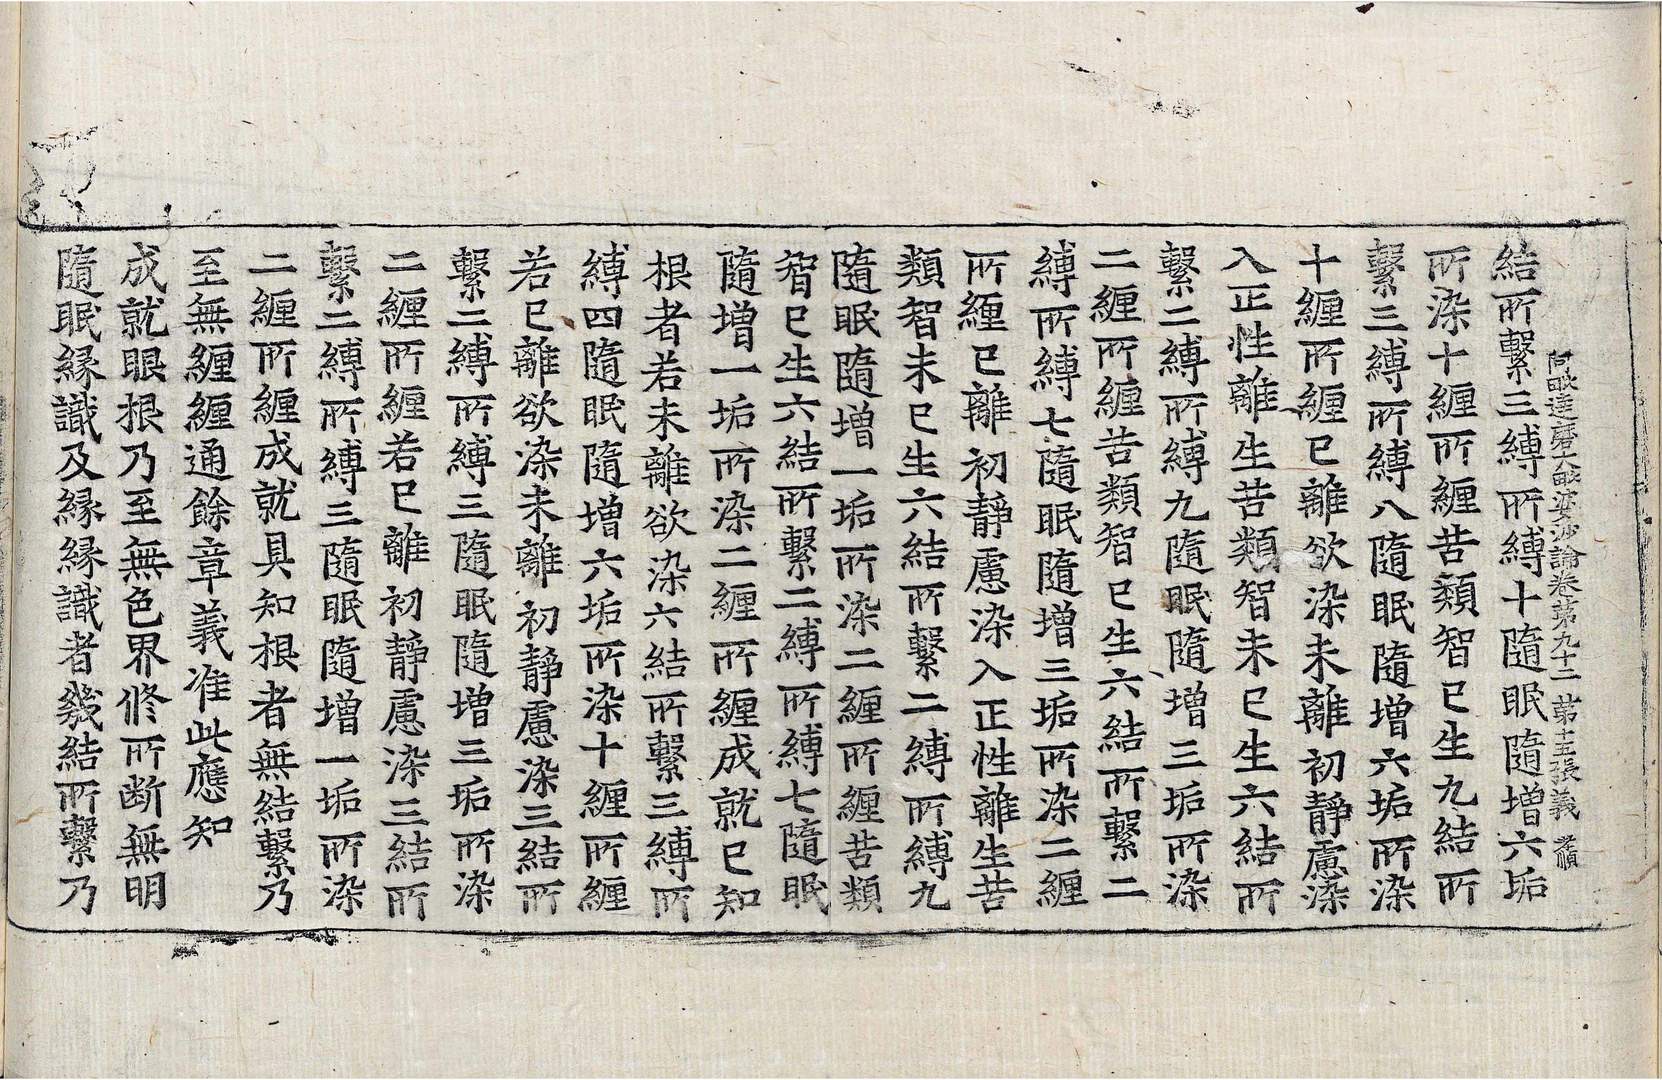 阿毗達磨大毗婆沙論卷第九十二 第十五張 義 孝順
結所繫三縛所縛十隨眠隨增六垢
所染十纏所纏苦類智已生九結所
繫三縛所縛八隨眠隨增六垢所染
十纏所纏已離欲染未離初靜慮染
入正性離生苦類智未已生六結所
繫二縛所縛九隨眠隨增三垢所染
二纏所纏苦類智已生六結所繫二
縛所縛七隨眠隨增三垢所染二纏
所纏已離初靜慮染入正性離生苦
類智未已生六結所繫二縛所縛九
隨眠隨增一垢所染二纏所纏苦類
智已生六結所繫二縛所縛七隨眠
隨增一垢所染二纏所纏成就已知
根者若未離欲染六結所繫三縛所
縛四隨眠隨增六垢所染十纏所纏
若已離欲染未離初靜慮染三結所
繫二縛所縛三隨眠隨增三垢所染
二纏所纏若已離初靜慮染三結所
繫二縛所縛三隨眠隨增一垢所染
二纏所纏成就具知根者無結繫乃
至無纏纏通餘章義准此應知
成就眼根乃至無色界修所斷無明
隨眠緣識及緣緣識者幾結所繫乃